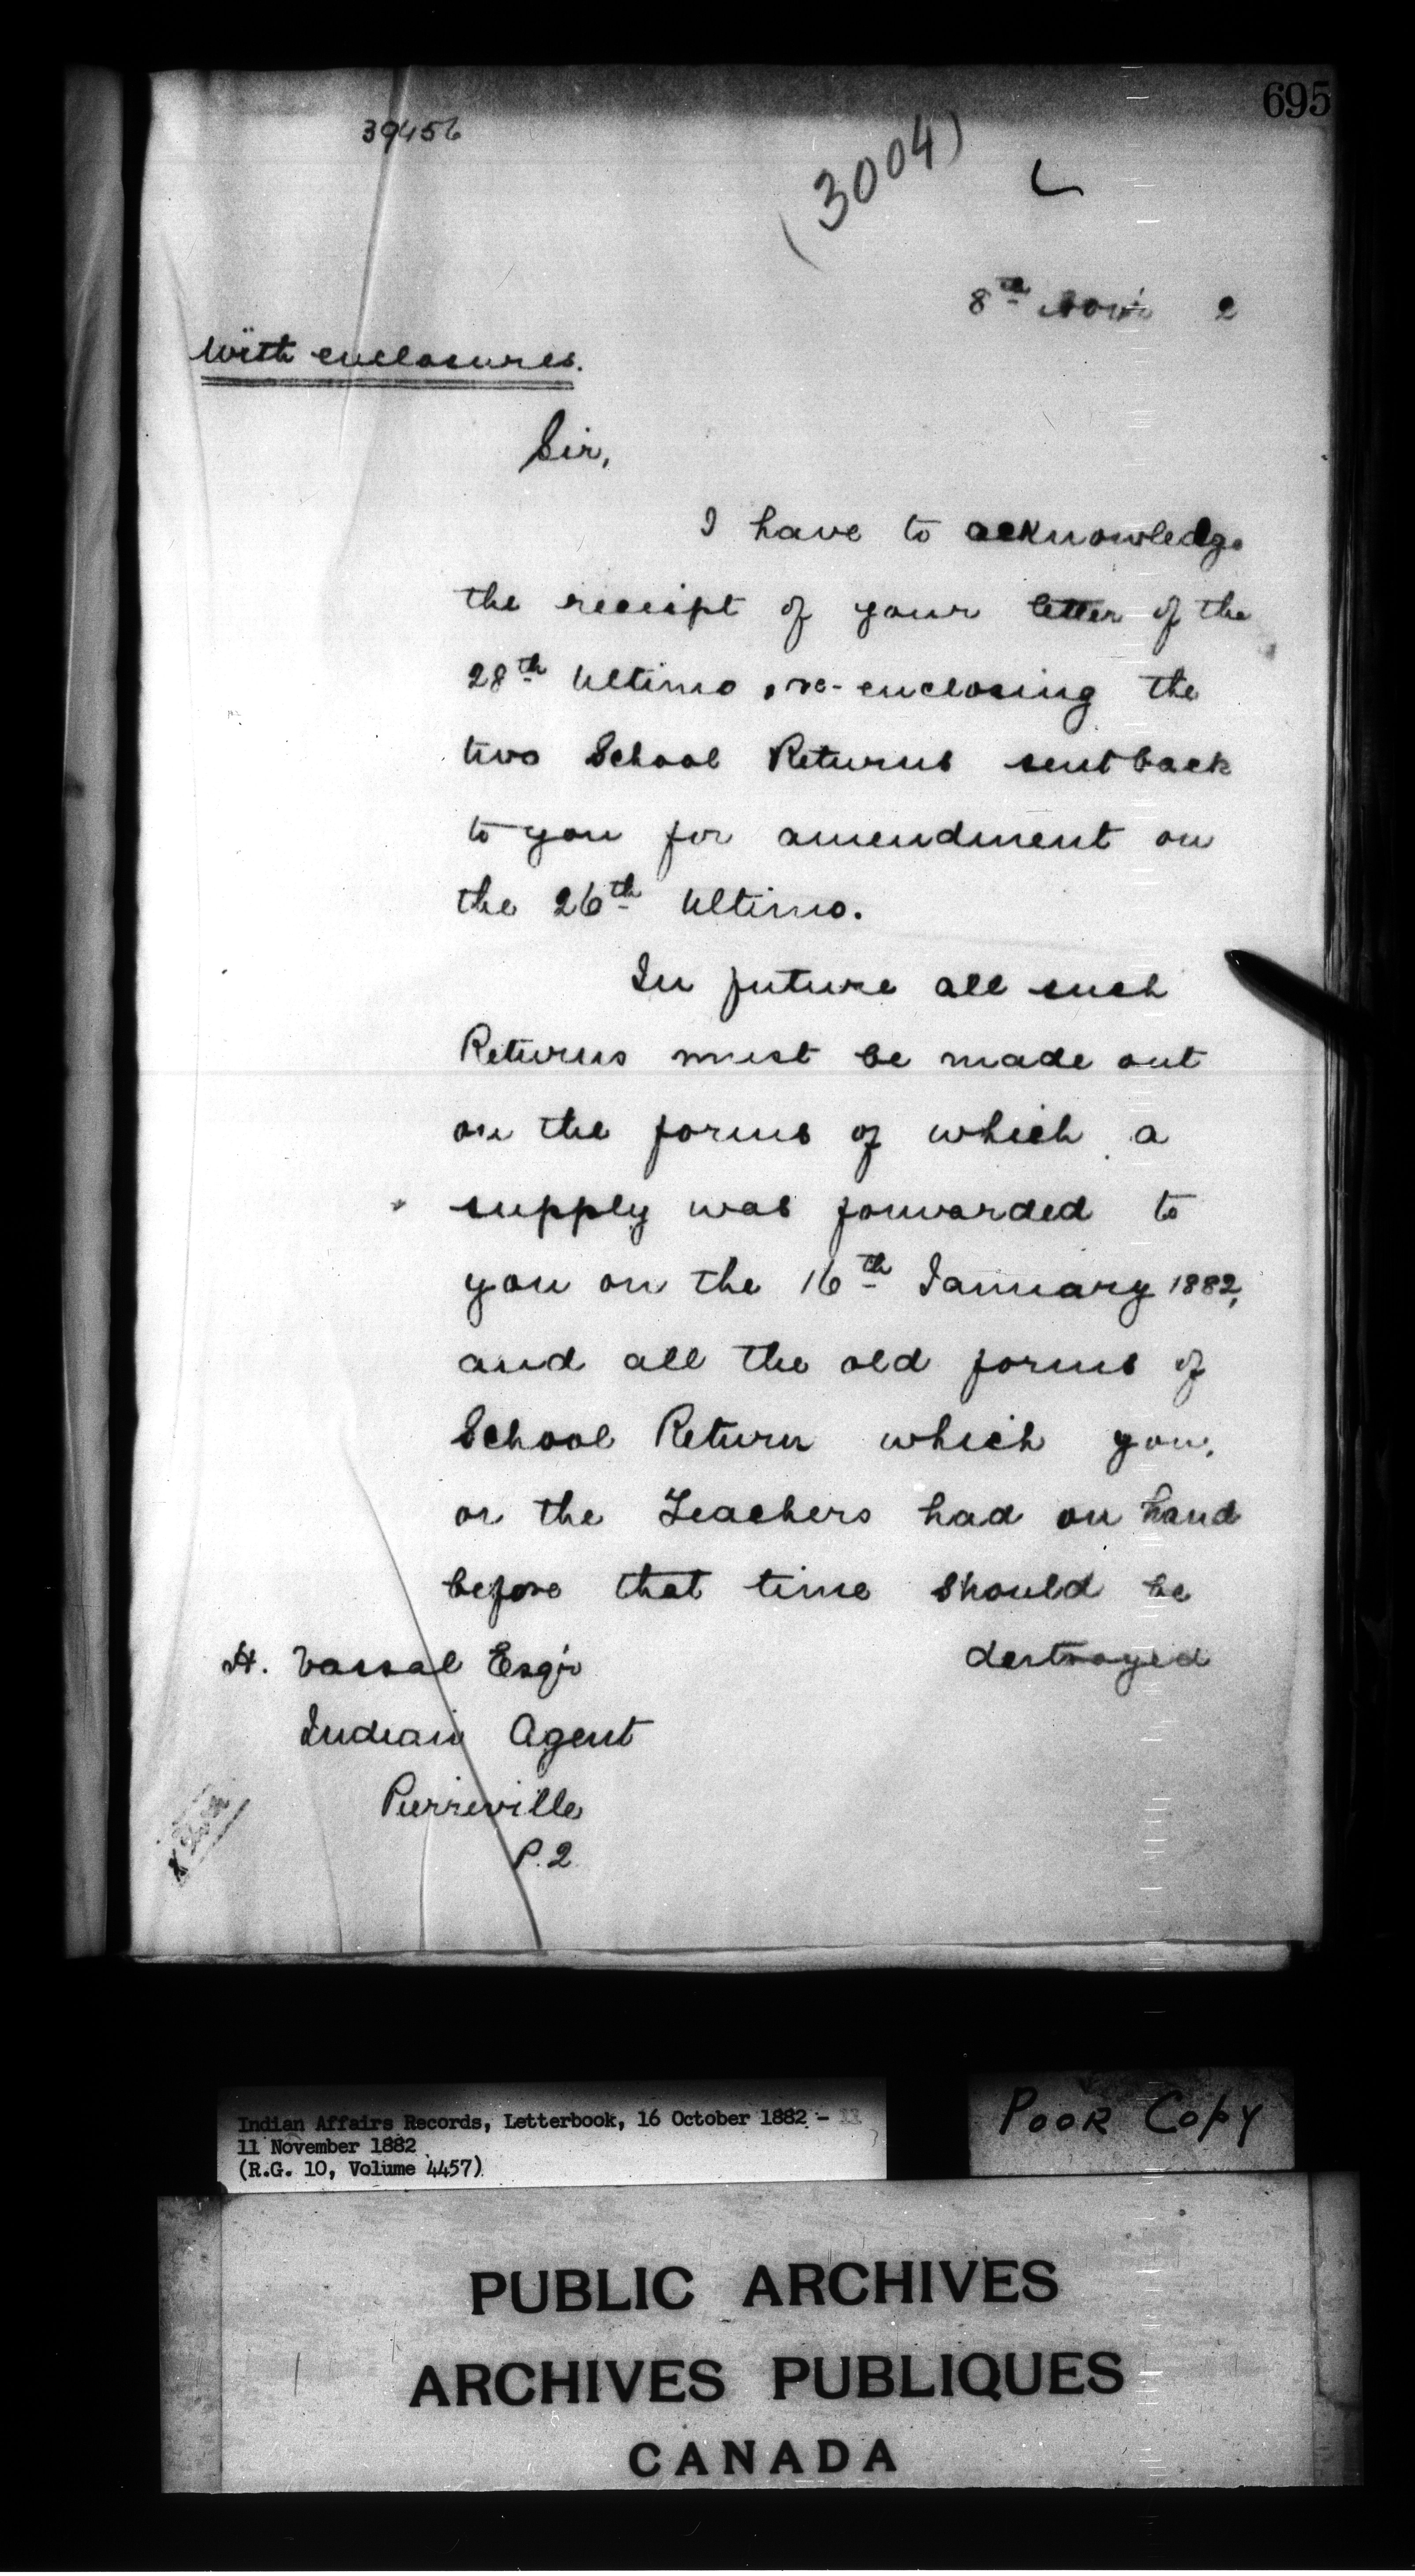 695
39456
(3004)
8th Nov'r 2
With enclosures.
Sir,
I have to acknowledge
the receipt of your letter of the
28th Ultimo, re-enclosing the
two School Returns sent back
to you for amendment on
the 26th Ultimo.
In future all such
Returns must be made out
on the forms of which a
supply was forwarded to
you on the 16th January 1882,
and all the old forms of
School Return which you,
or the Teachers had on hand
before that time should be
destroyed
H. Vassal Esq'r
Indian Agent
Pierreville
P.Q.
Indian Affairs Records, Letterbook, 16 October 1882 -
11 November 1882
(R.G. 10, Volume 4457)
Poor Copy
PUBLIC ARCHIVES
ARCHIVES PUBLIQUES
CANADA